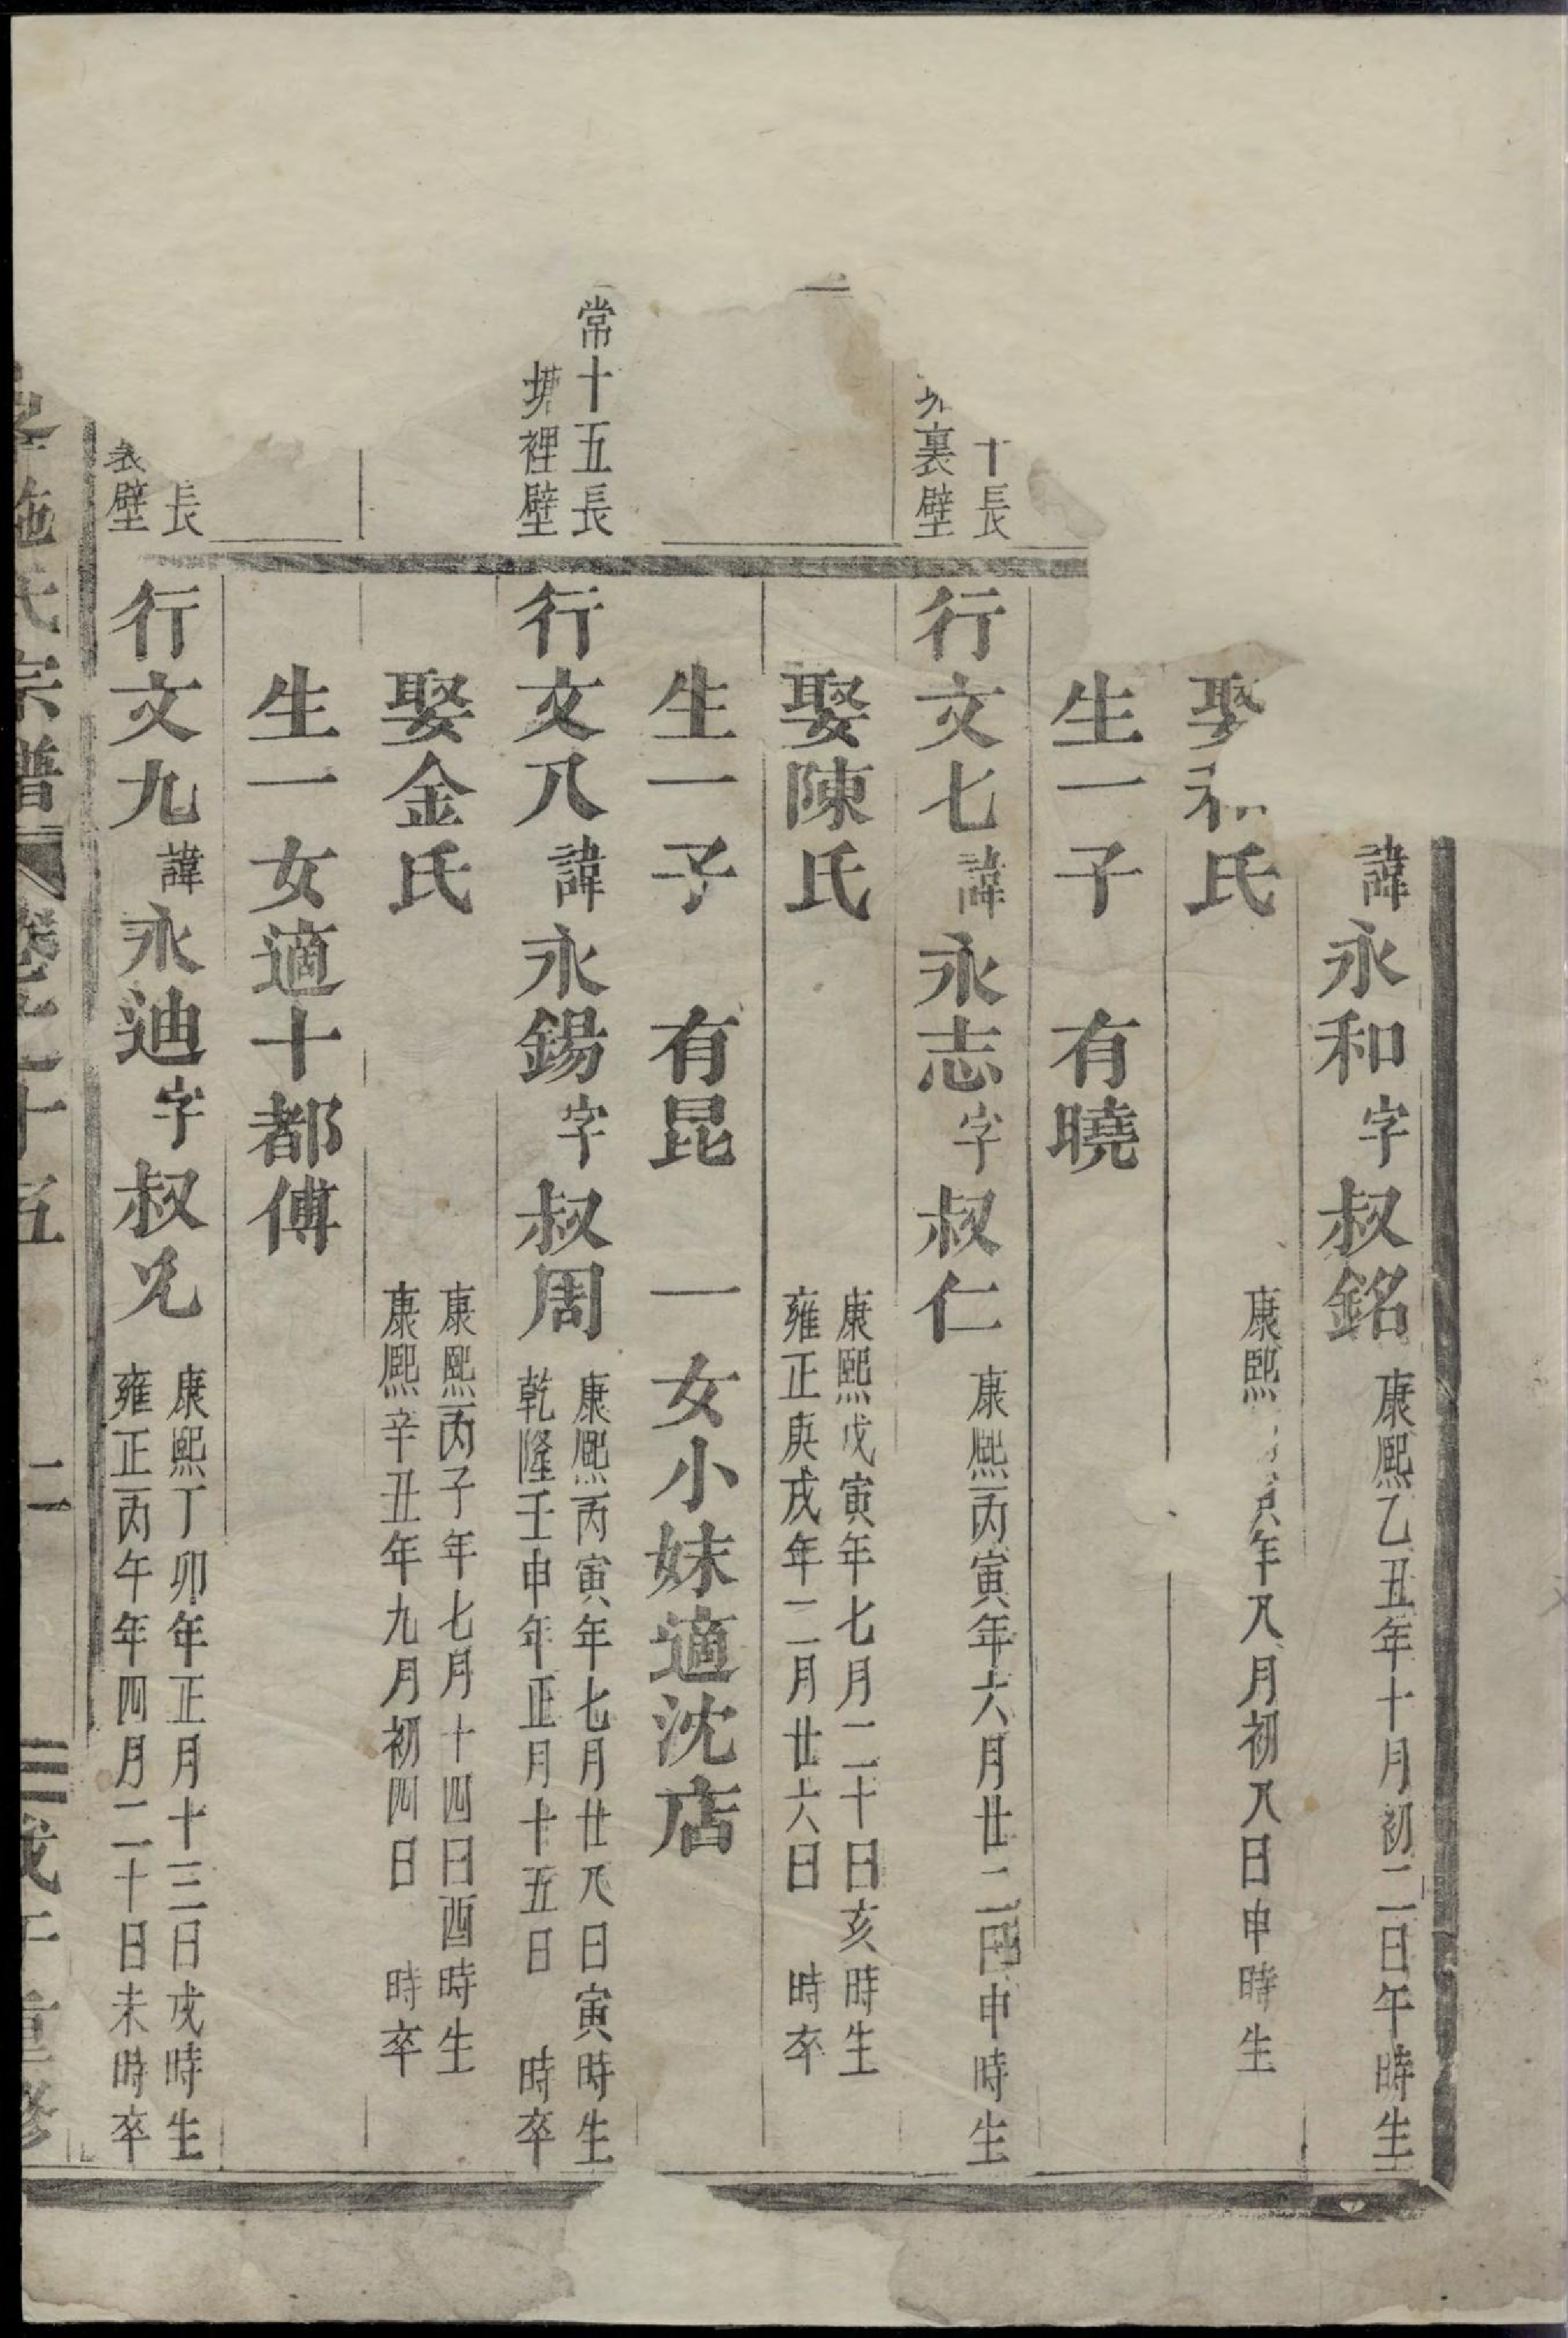 諱永和字叔銘 康熙乙丑年十月初二日午時生
娶 氏 康熙 寅年八月初八日申時生
生一子 有曉
十長
裏壁
行文七諱永志字叔仁 康熙丙寅年六月廿二日申時生
娶陳氏 康熙戊寅年七月二十日亥時生
雍正庚戌年二月廿六日 時卒
生一子 有昆 一女小妹適沈店
常十五長
塘裡壁
行文八諱永錫字叔周 康熙丙寅年七月廿八日寅時生
乾隆壬申年正月十五日 時卒
娶金氏 康熙丙子年七月十四日酉時生
康熙辛丑年九月初四日 時卒
生一女適十都傅
長
壁
行文九諱永迪字叔兄 康熙丁卯年正月十三日戌時生
雍正丙午年四月二十日未時卒
施氏宗譜 卷之十五 二 戊午重修